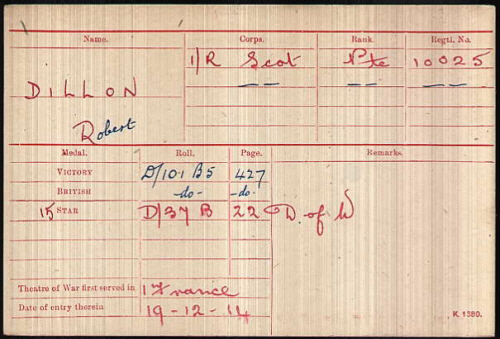 Name. Corps. Rank. Regtl. No.
DILLON 1/R Scot Pte 10025
Robert — — — — — —
Medal. Roll. Page. Remarks.
VICTORY D/101 B5 427
BRITISH -do- -do-
15 STAR D/37 B 22 D. of W
Theatre of War first served in 1 France
Date of entry therein 19-12-14
K 1380.